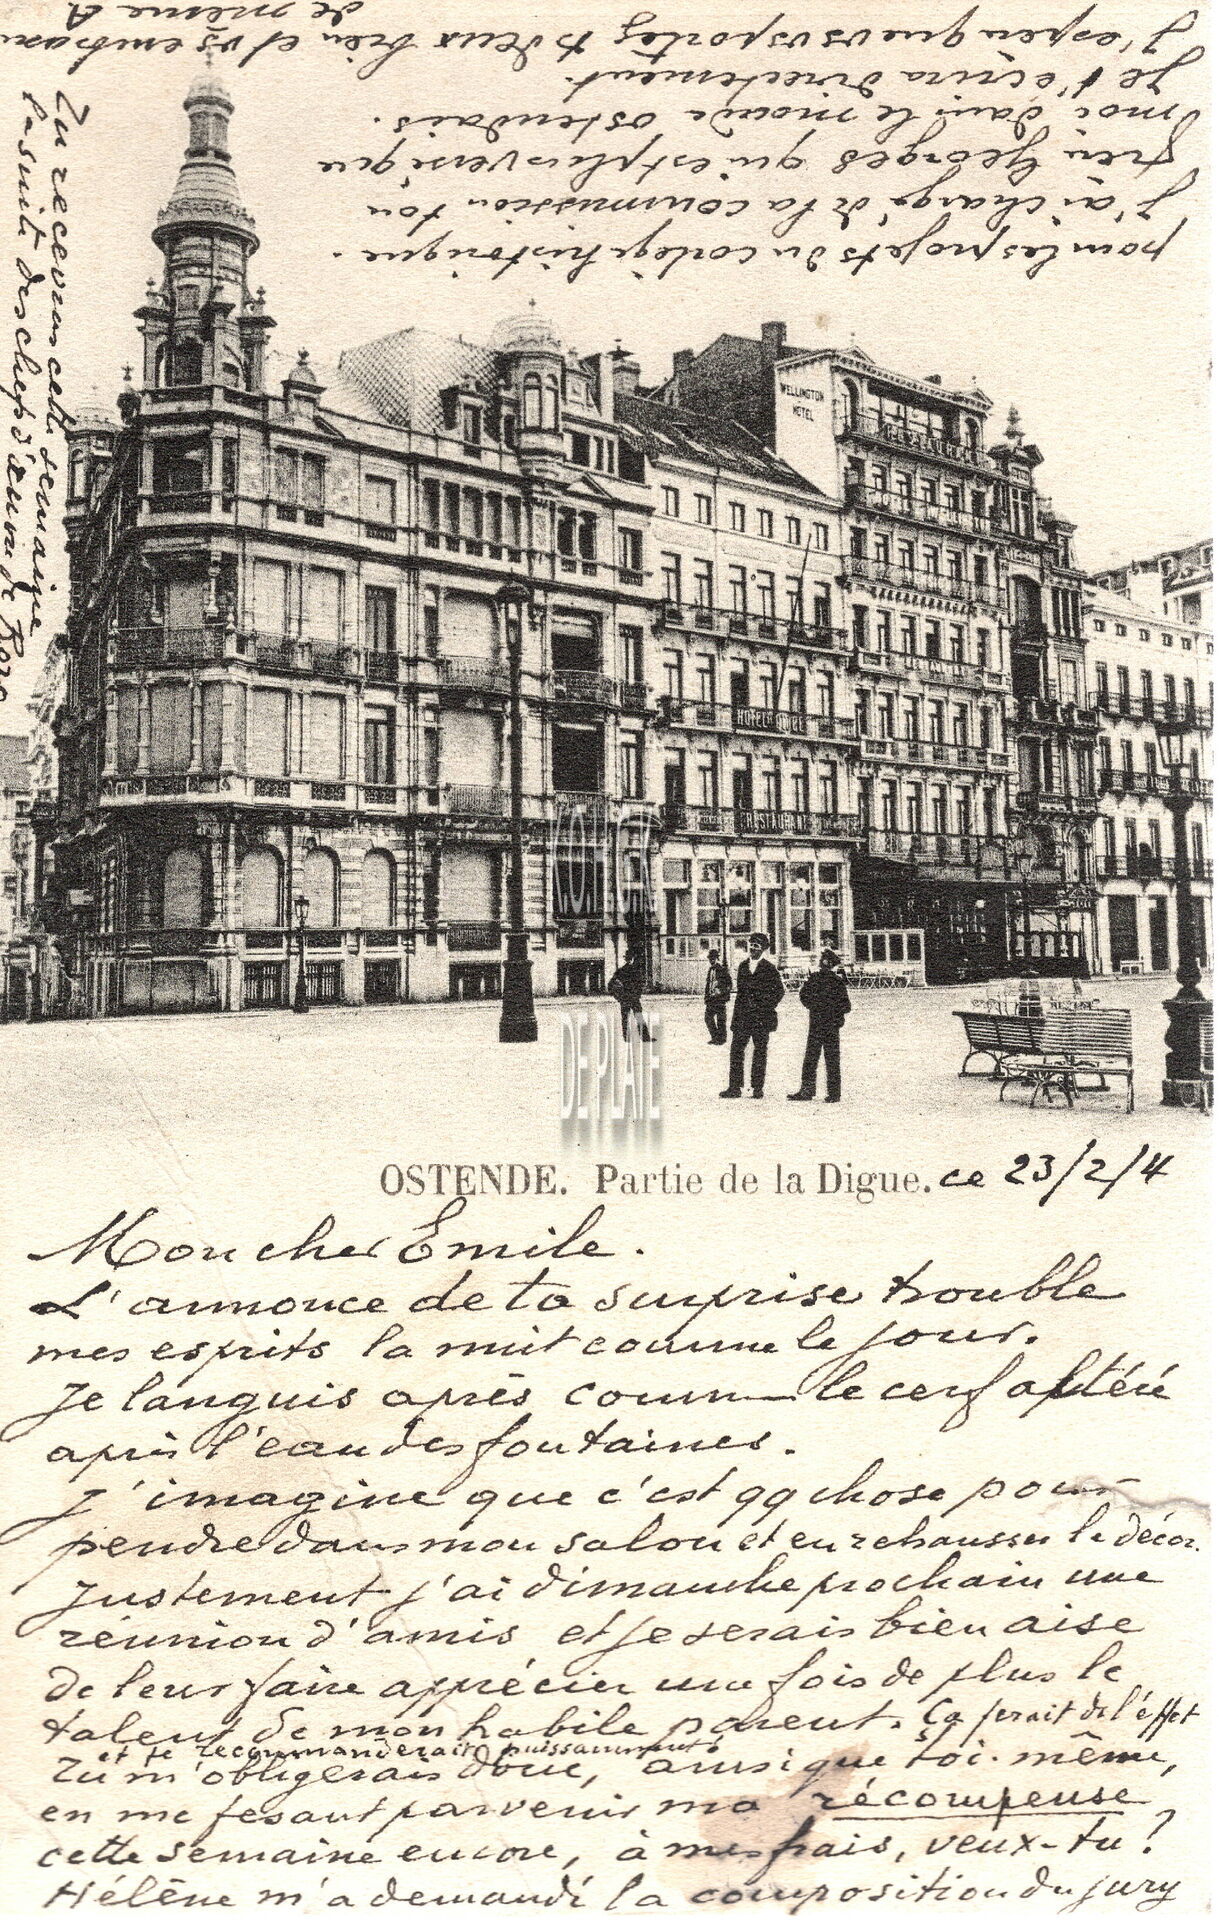 OSTENDE. Partie de la Digue. ce 23/2/4
Mon cher Emile.
L'annonce de ta surprise trouble
mes esprits la nuit comme le jour.
Je languis après comme le cerf altéré
après l'eau des fontaines.
J'imagine que c'est qq chose pour
pendre dans mon salon et en rehausser le décor.
Justement j'ai dimanche prochain une
réunion d'amis et je serais bien aise
de leur faire apprécier une fois de plus le
talent de mon habile parent. Ça ferait de l'effet
et te recommanderait puissamment.
Tu m'obligerais donc, ainsi que toi-même,
en me fesant parvenir ma récompense
cette semaine encore, à mes frais, veux-tu?
Hélène m'a demandé la composition du jury
pour les projets du cortège historique.
J'ai chargé de la commission ton
frère Georges qui est plus versé que
moi dans le monde ostendais.
Je t'écrira directement.
J'espère que vs vs portez ts deux bien et vs embrasse
de même A
Tu recevras cette semaine
la suite des chefs d'œuvre de Rore
WELLINGTON
HOTEL
RESTAURANT
KOLLECTIE
DE PLATE